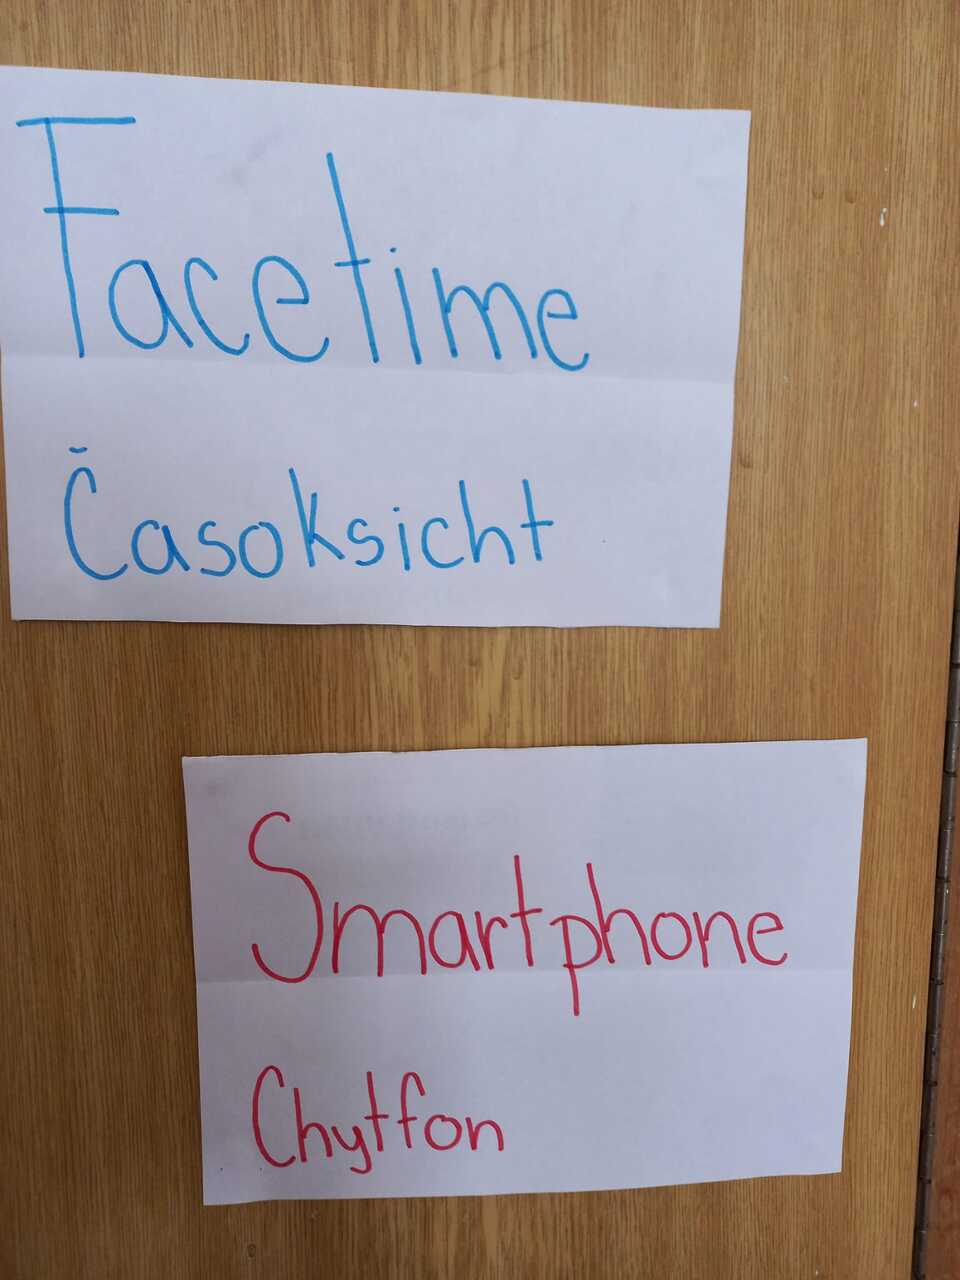 Facetime
Časoksicht
Smartphone
Chytfon